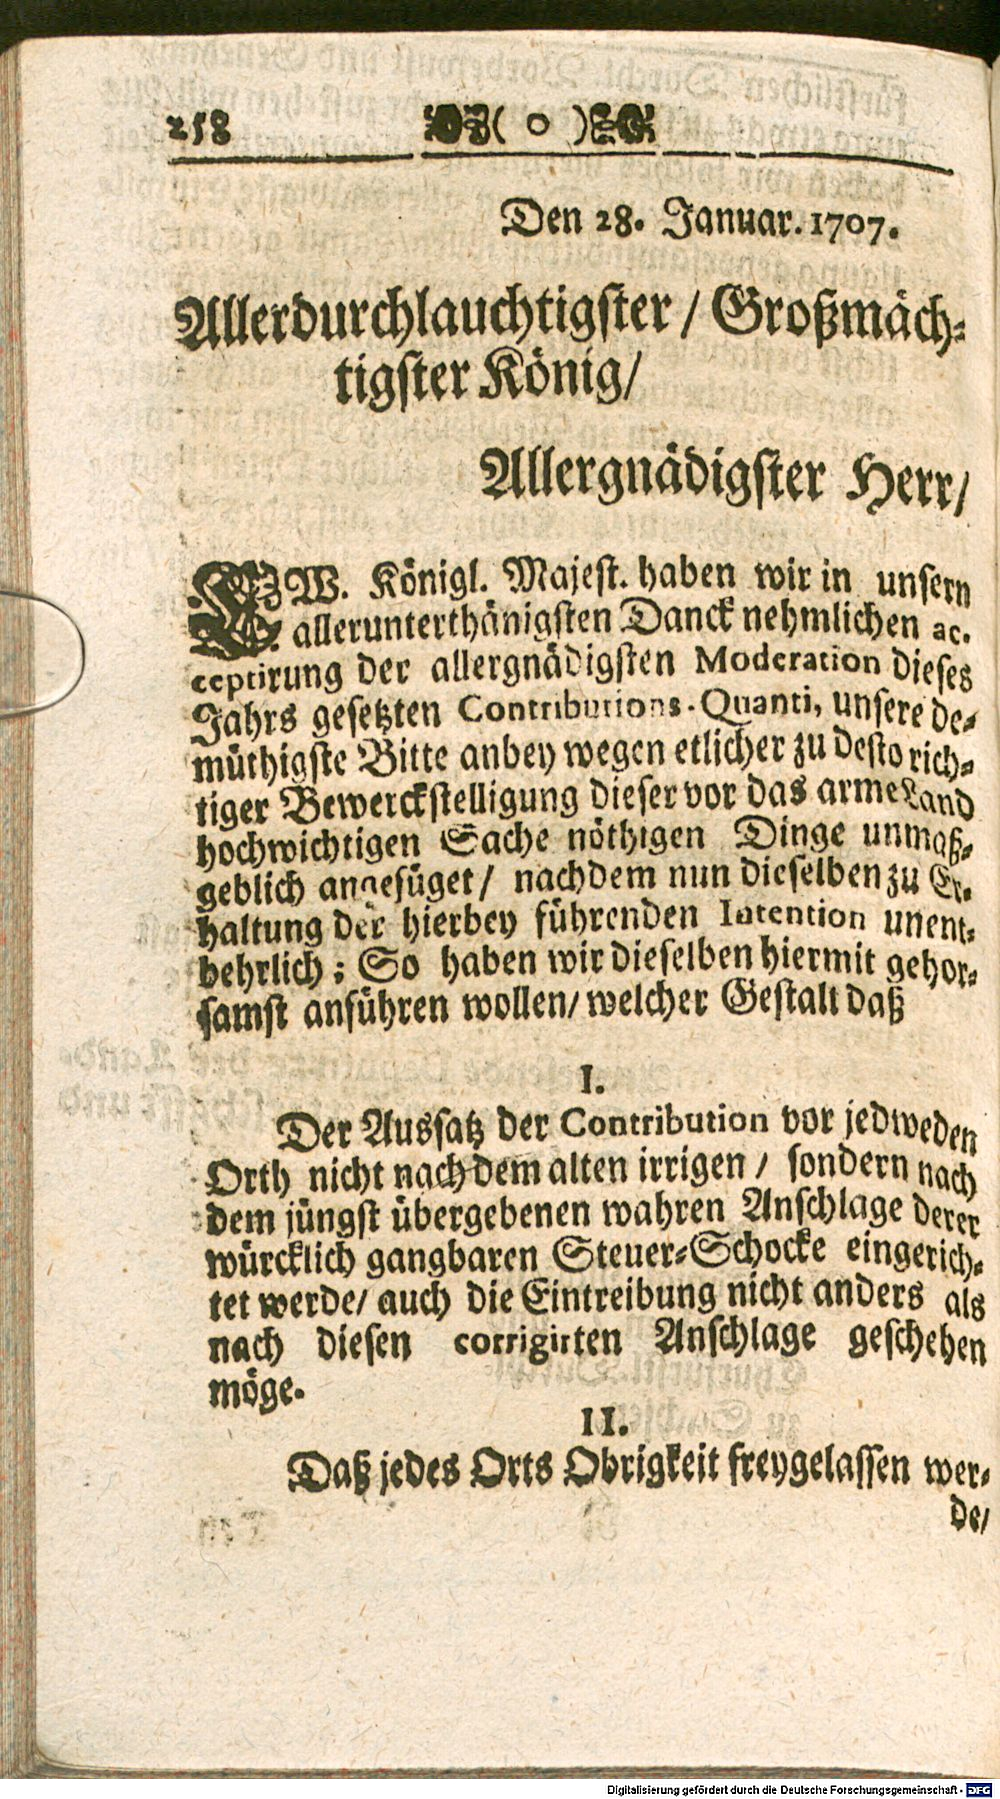 258 ( o )
Den 28. Januar. 1707.
Allerdurchlauchtigster / Großmäch-
tigster König/
Allergnädigster Herr/
EW. Königl. Majest. haben wir in unsern
allerunterthänigsten Danck nehmlichen ac-
ceptirung der allergnädigsten Moderation dieses
Jahrs gesetzten Contributions-Quanti, unsere de-
müthigste Bitte anbey wegen etlicher zu desto rich-
tiger Bewerckstelligung dieser vor das arme Land
hochwichtigen Sache nöthigen Dinge unmaß-
geblich angefüget / nachdem nun dieselben zu Er-
haltung der hierbey führenden Intention unent-
behrlich; So haben wir dieselben hiermit gehor-
samst anführen wollen/ welcher Gestalt daß
I.
Der Aussatz der Contribution vor jedweden
Orth nicht nach dem alten irrigen / sondern nach
dem jüngst übergebenen wahren Anschlage derer
würcklich gangbaren Steuer-Schocke eingerich-
tet werde/ auch die Eintreibung nicht anders als
nach diesen corrigirten Anschlage geschehen
möge.
II.
Daß jedes Orts Obrigkeit freygelassen wer-
de/
Digitalisierung gefördert durch die Deutsche Forschungsgemeinschaft - DFG